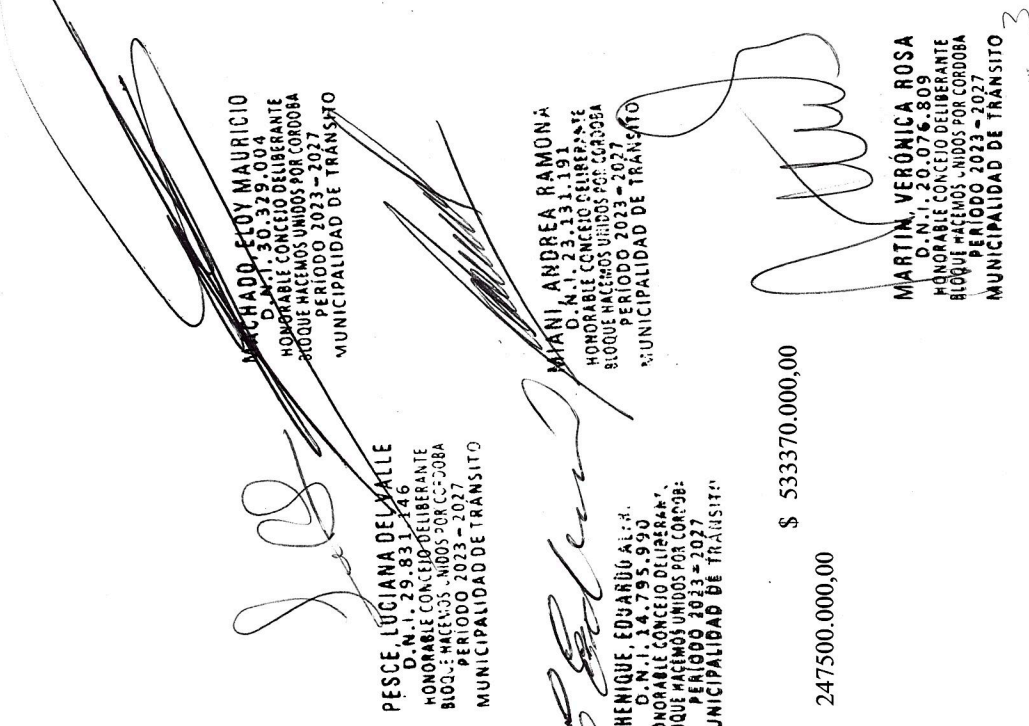 MACHADO, ELOY MAURICIO
D.N.I. 30.329.004
HONORABLE CONCEJO DELIBERANTE
BLOQUE HACEMOS UNIDOS POR CORDOBA
PERÍODO 2023-2027
MUNICIPALIDAD DE TRÁNSITO
PESCE, LUCIANA DEL VALLE
D.N.I. 29.831.146
HONORABLE CONCEJO DELIBERANTE
BLOQUE HACEMOS UNIDOS POR CORDOBA
PERÍODO 2023-2027
MUNICIPALIDAD DE TRÁNSITO
MIANI, ANDREA RAMONA
D.N.I. 23.131.191
HONORABLE CONCEJO DELIBERANTE
BLOQUE HACEMOS UNIDOS POR CORDOBA
PERÍODO 2023-2027
MUNICIPALIDAD DE TRÁNSITO
HENIQUE, EDUARDO
D.N.I. 14.795.990
HONORABLE CONCEJO DELIBERANT
BLOQUE HACEMOS UNIDOS POR CORDOBA
PERÍODO 2023-2027
MUNICIPALIDAD DE TRÁNSITO
MARTIN, VERÓNICA ROSA
D.N.I. 20.076.809
HONORABLE CONCEJO DELIBERANTE
BLOQUE HACEMOS UNIDOS POR CORDOBA
PERÍODO 2023-2027
MUNICIPALIDAD DE TRÁNSITO
$ 533370.000,00
247500.000,00
3